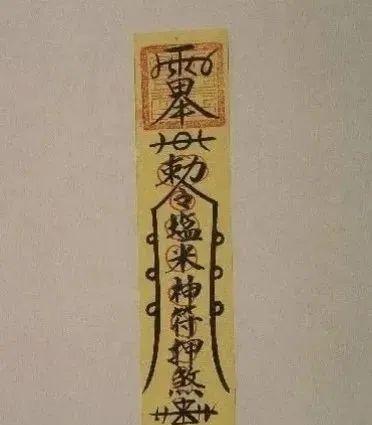 勅令塩米神符押煞